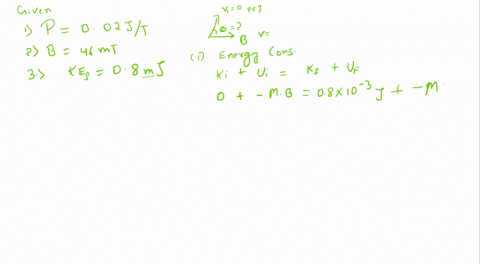 Given
1) P = 0.02 J/T
2) B = 46 mT
3.) KEf = 0.8 mJ
Vi=0
θ=?
B
V=
(i) Energy Cons.
Ki + Ui = Kf + UF
0 + -M.B = 0.8×10-3 J + -M.